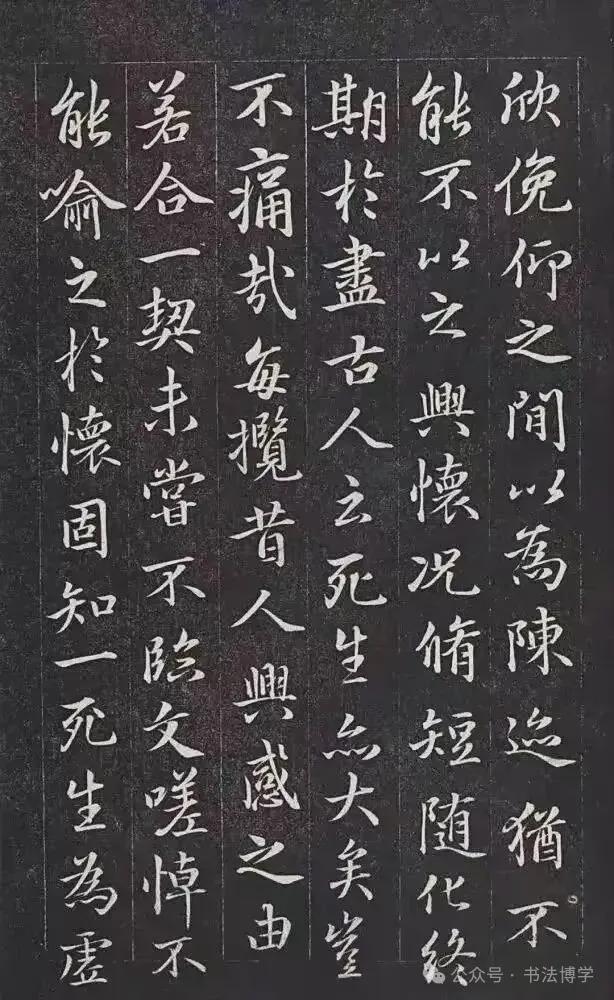 欣俛仰之間以為陳迹猶不
能不以之興懷况脩短随化終
期於盡古人云死生亦大矣豈
不痛哉每攬昔人興感之由
若合一契未嘗不臨文嗟悼不
能喻之於懷固知一死生為虛
公众号·书法博学